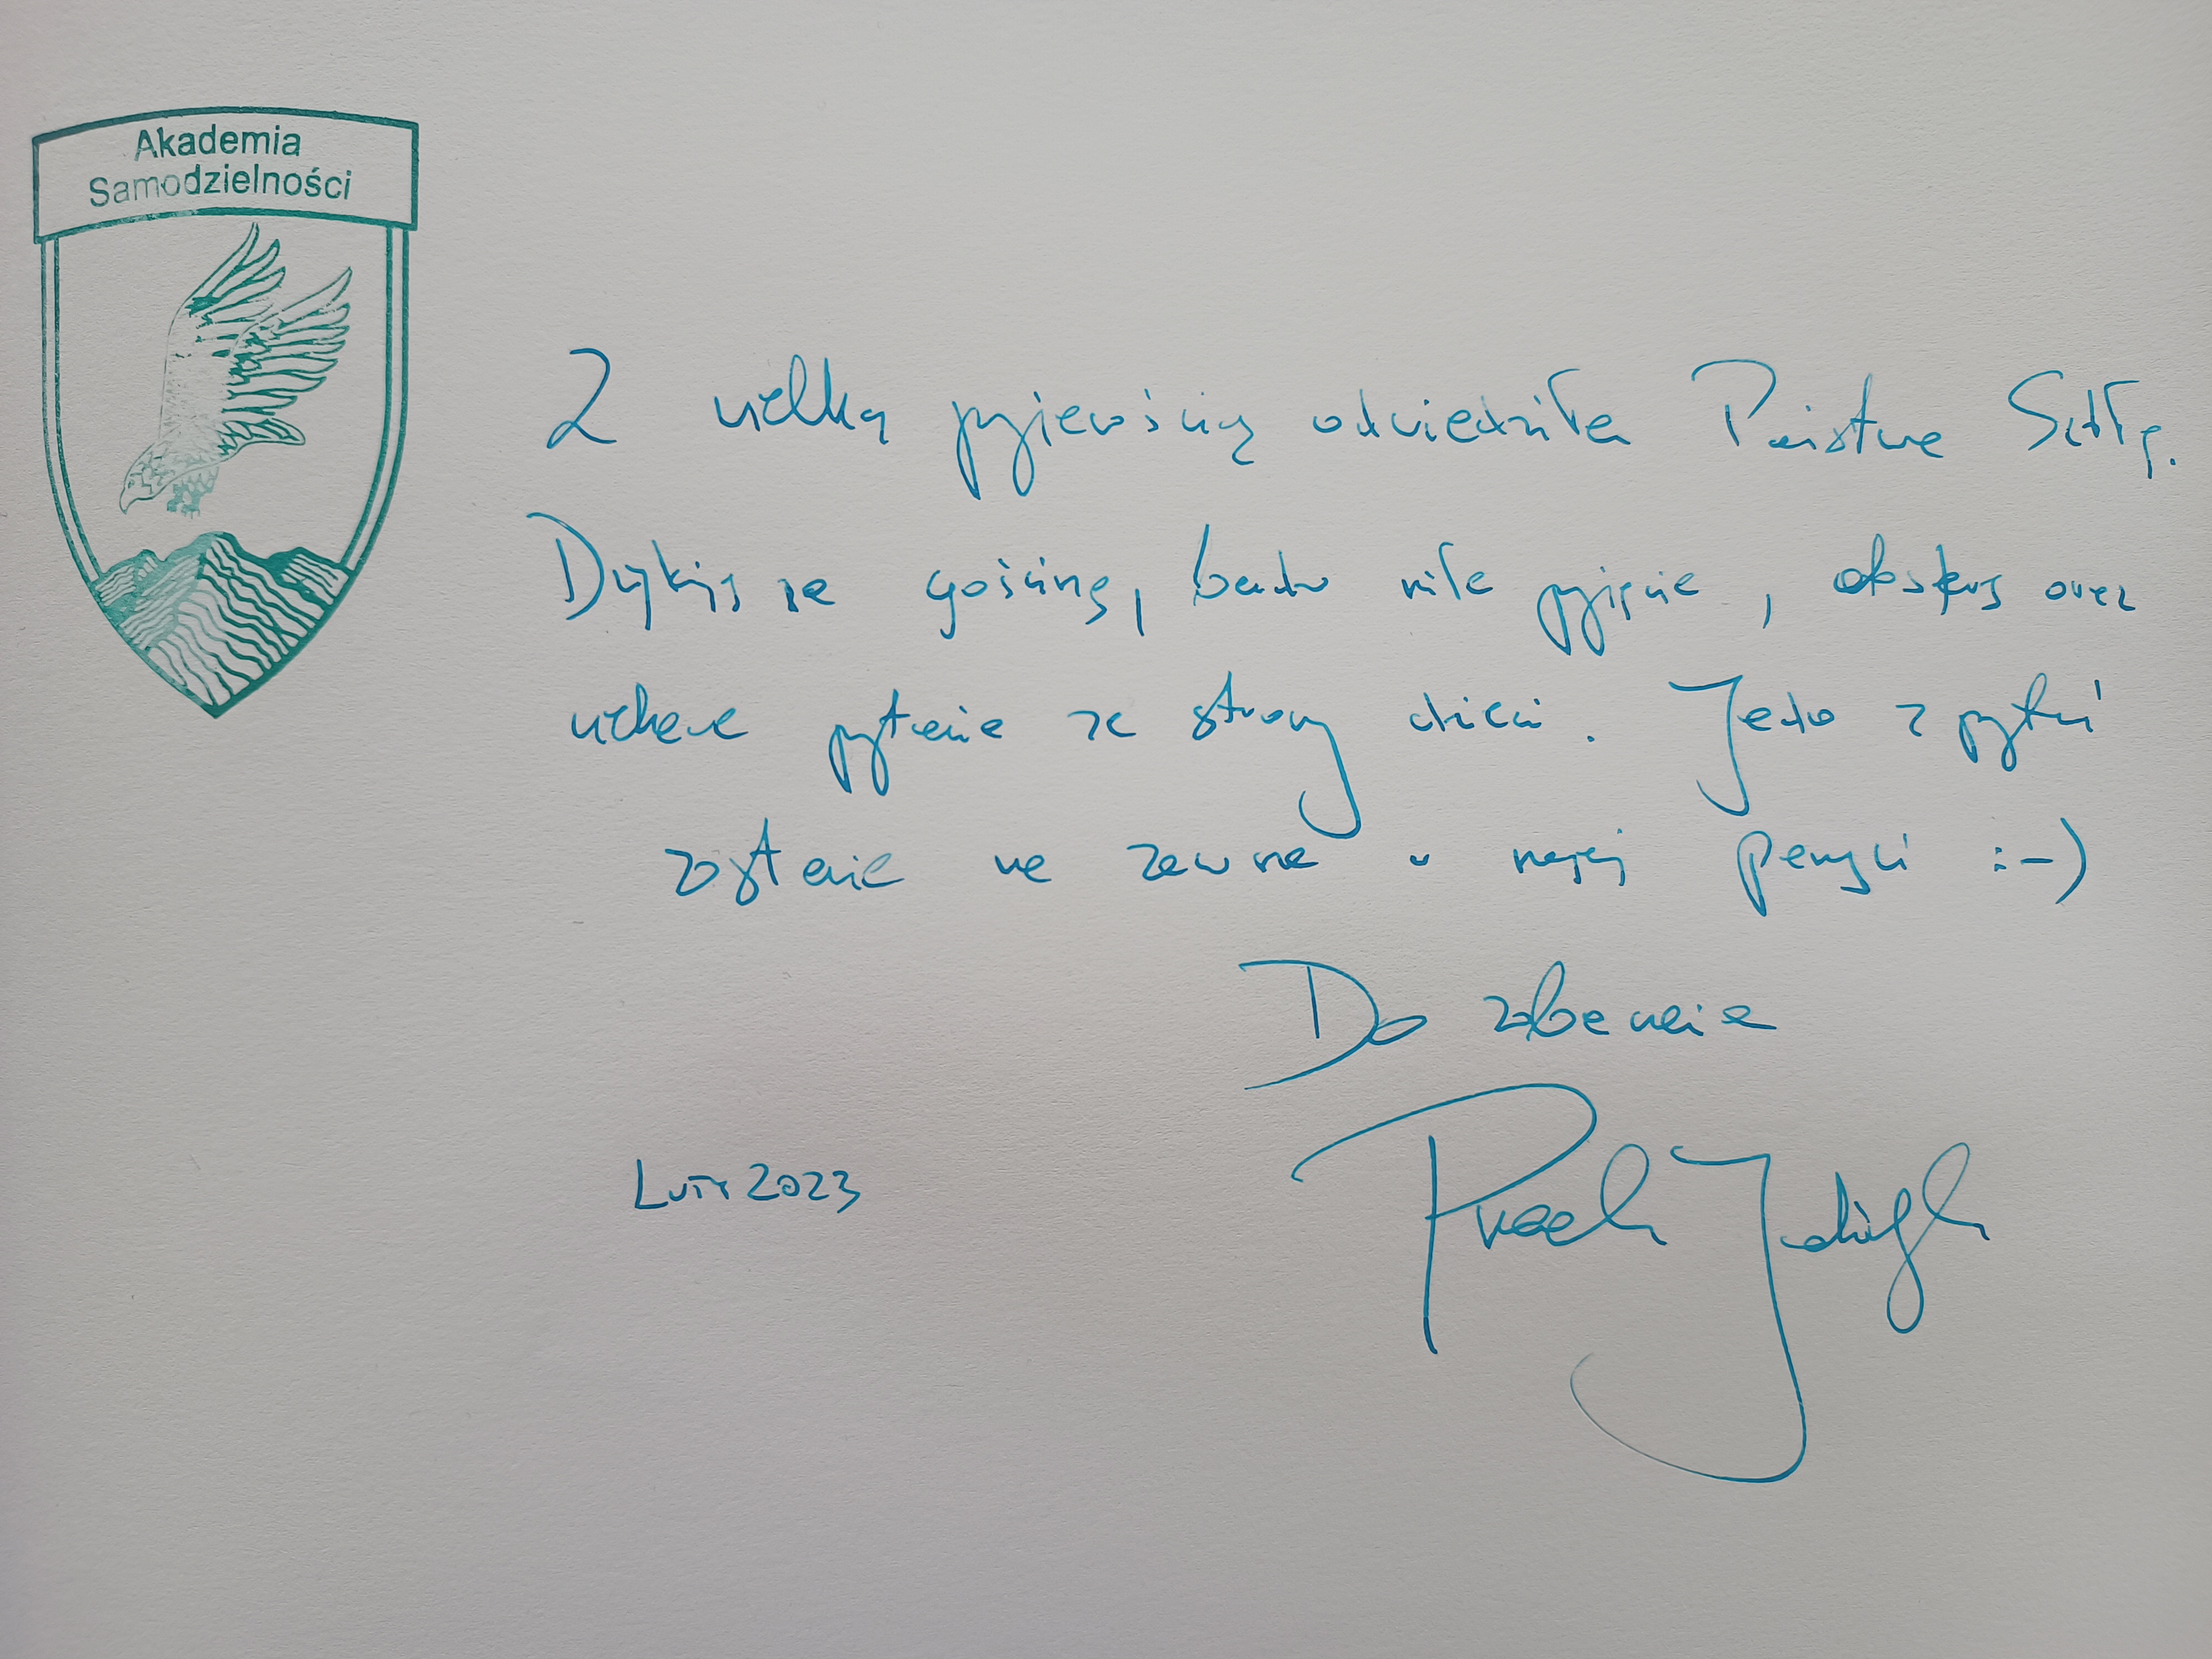 Akademia
Samodzielności
Z wielką przyjemnością odwiedziłem Państwa Szkołę.
Dziękuję za gościnę, bardzo miłe przyjęcie, oraz
ciekawe pytania ze strony dzieci. Jedno z pytań
zostanie na zawsze w mojej pamięci :-)
Do zobaczenia
Luty 2023